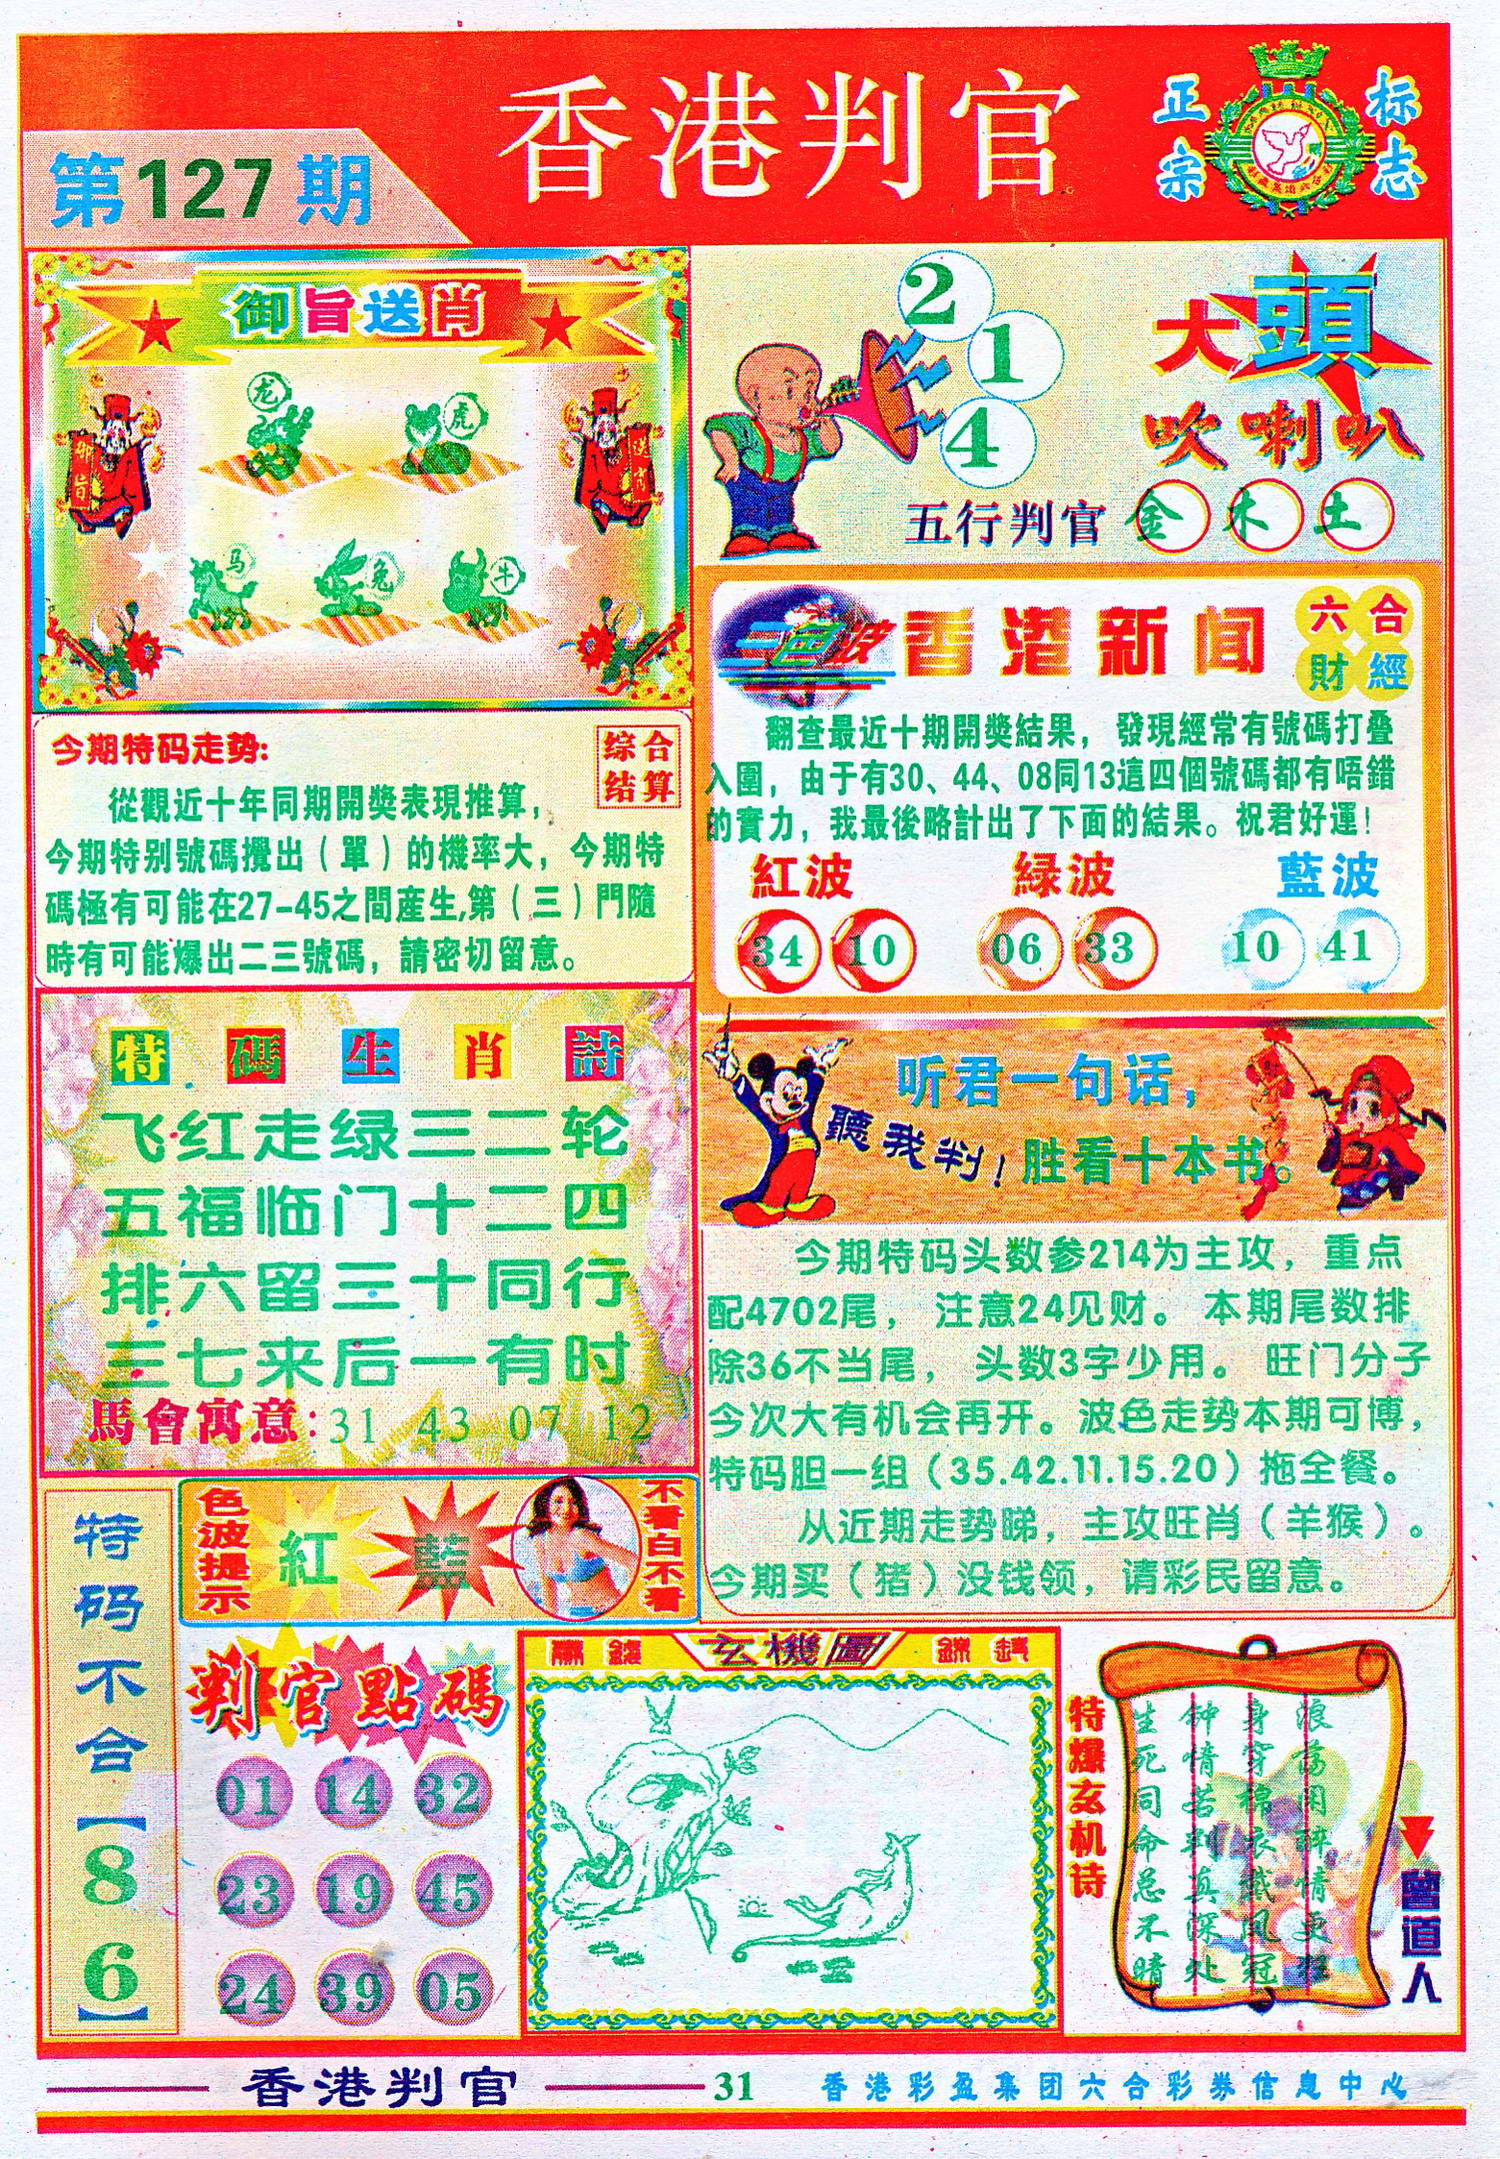 香港判官
正宗
标志
第127期
御旨送肖
御旨
龙
虎
马
兔
牛
2
1
4
大頭
吹喇叭
五行判官 金 木 土
今期特码走势:
综合
结算
從觀近十年同期開獎表現推算,
今期特别號碼攪出(單)的機率大,今期特
碼極有可能在27-45之間産生,第(三)門隨
時有可能爆出二三號碼,請密切留意。
三色波
香港新闻
六合
財經
翻查最近十期開獎結果,發現經常有號碼打叠
入圍,由于有30、44、08同13這四個號碼都有唔錯
的實力,我最後略計出了下面的結果。祝君好運!
紅波 緑波 藍波
34 10 06 33 10 41
特碼生肖詩
飞红走绿三二轮
五福临门十二四
排六留三十同行
三七来后一有时
馬會寓意:31 43 07 12
聽我判!
听君一句话,
胜看十本书。
今期特码头数参214为主攻,重点
配4702尾,注意24见财。本期尾数排
除36不当尾,头数3字少用。旺门分子
今次大有机会再开。波色走势本期可博,
特码胆一组(35.42.11.15.20)拖全餐。
从近期走势睇,主攻旺肖(羊猴)。
今期买(猪)没钱领,请彩民留意。
特码不合【86】
色波提示
紅
藍
不看白不看
判官點碼
01 14 32
23 19 45
24 39 05
玄機圖
特爆玄机诗
浪荡闲醉情更狂
身穿棉衣戴风冠
钟情若到真深处
生死同命总不晴
曾道人
香港判官
31
香港彩盈集团六合彩券信息中心